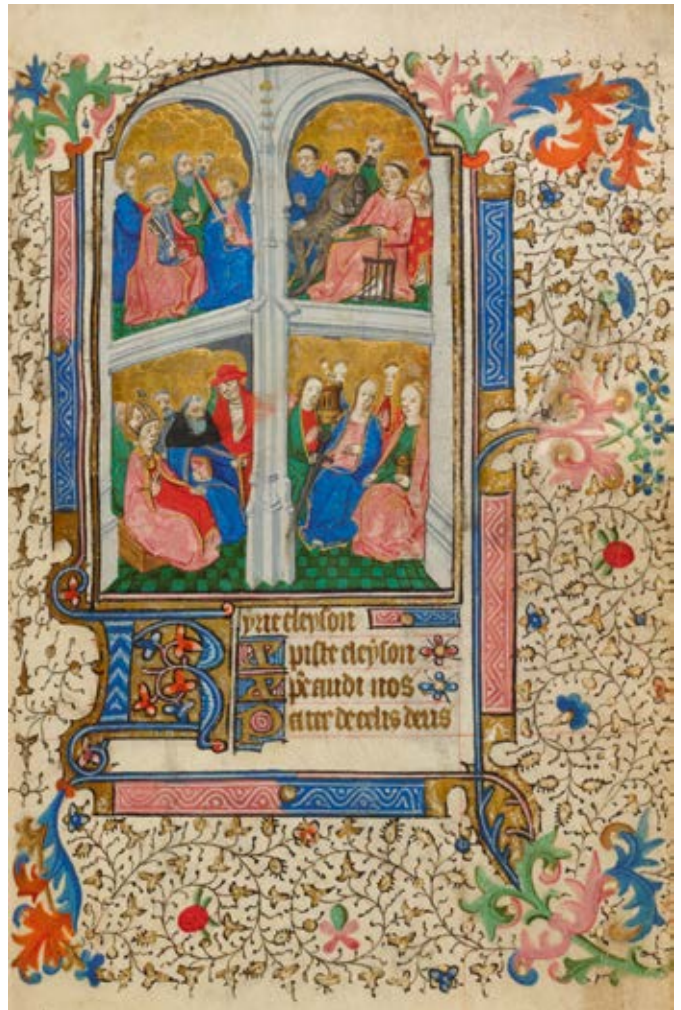 Kyrie eleyson
Xpiste eleyson
Xpe audi nos
Pater de celis deus